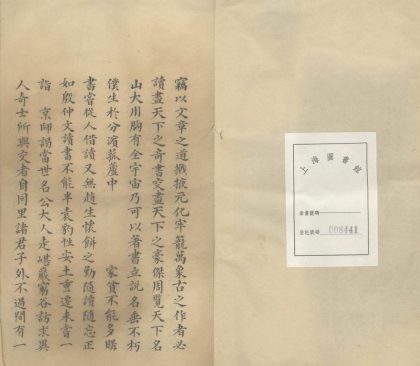 竊以文章之道摧掖元化牢籠萬象古之作者必
讀盡天下之奇書交盡天下之豪傑周覽天下名
山大川胸有全宇宙乃可以著書立說名垂不朽
僕生於分濱菰蘆中 家貧不能多購
書嘗從人借讀又無趙生懷餅之勤隨讀隨忘正
如殷仲文讀書不能半袁豹性安土重遷未嘗一
詣 京師謁當世名公大人走巉巖窮谷訪求異
人奇士所與交者自同里諸君子外不過間有一
上海圖書館
索書號碼
登記號碼 008441